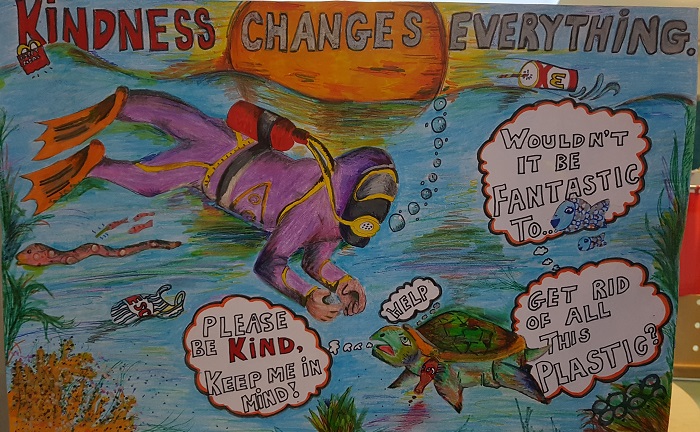 KINDNESS CHANGES EVERYTHING.
WOULDN'T
IT BE
FANTASTIC
TO...
HELP
GET RID
OF ALL
THIS
PLASTIC?
PLEASE
BE KIND,
KEEP ME IN
MIND!